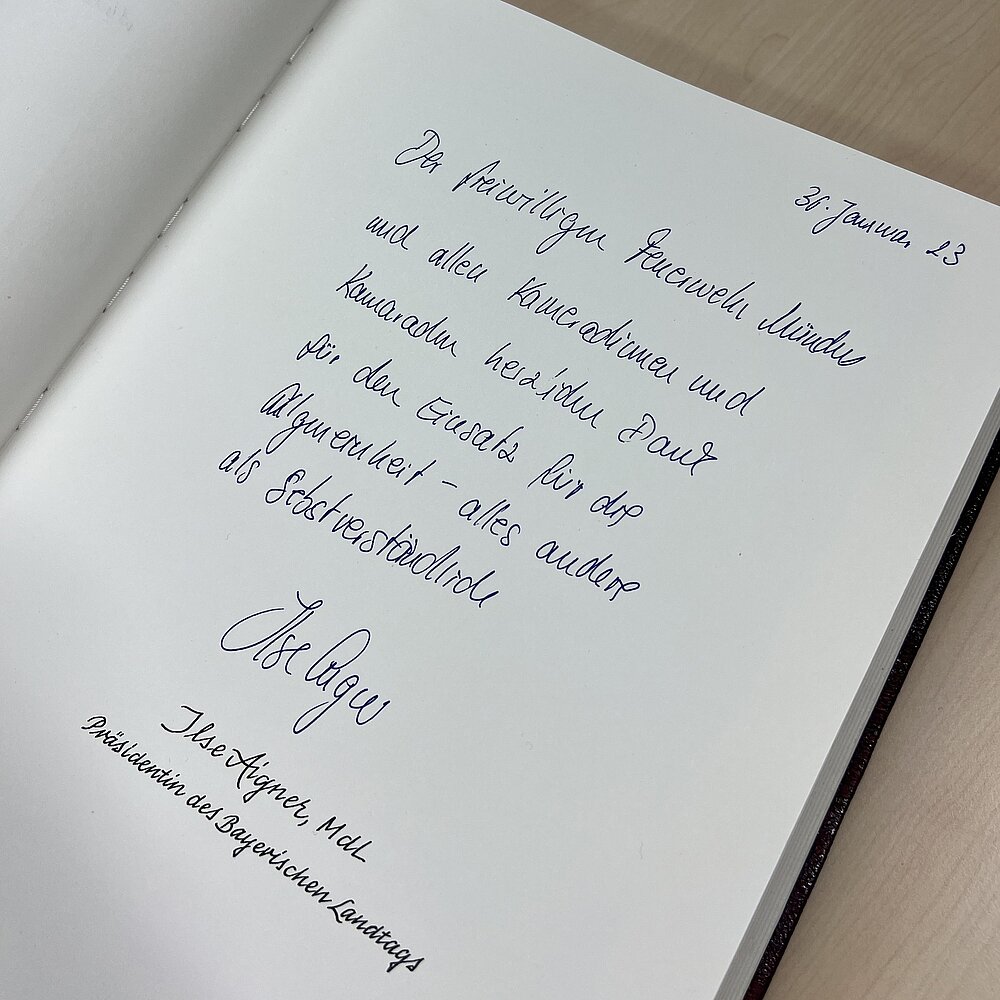 Januar 23
Der freiwilligen Feuerwehr München
und allen Kameradinnen und
Kameraden herzlichen Dank
für den Einsatz für die
Allgemeinheit - alles andere
als Selbstverständlich
Ilse Aigner
Ilse Aigner, MdL
Präsidentin des Bayerischen Landtags